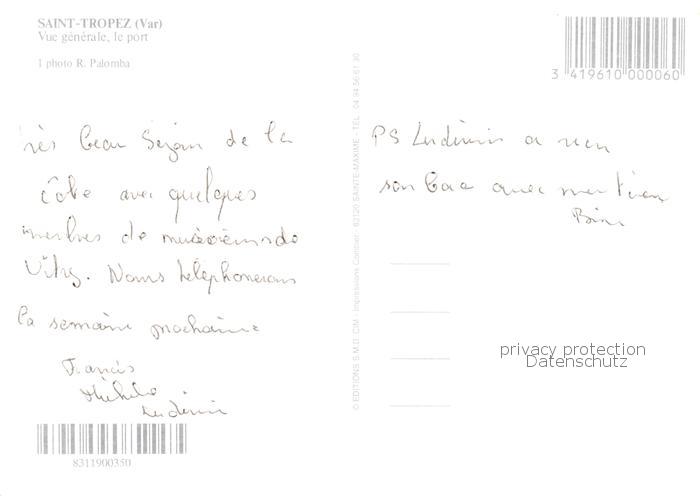 SAINT-TROPEZ (Var)
Vue générale, le port
1 photo R. Palomba
3 419610 000060
très beau séjour de la
côte avec quelques
membres de musiciens de
Vitry. Nous téléphonerons
la semaine prochaine
Francis
Michèle
Ludivin
8311900350
© EDITIONS S.M.D. CIM - Impressions Combier - 83120 SAINTE-MAXIME - TEL. 04 94 56 61 30
PS Ludivin a
son bac avec mention
Bien
privacy protection
Datenschutz